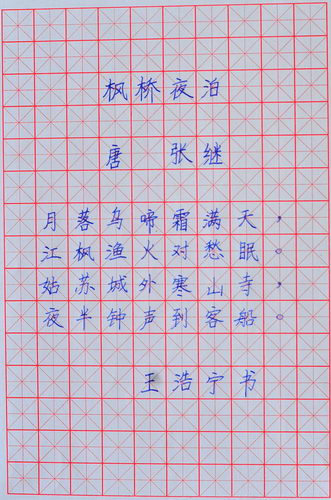 枫桥夜泊
唐 张继
月落乌啼霜满天，
江枫渔火对愁眠。
姑苏城外寒山寺，
夜半钟声到客船。
王浩宁书